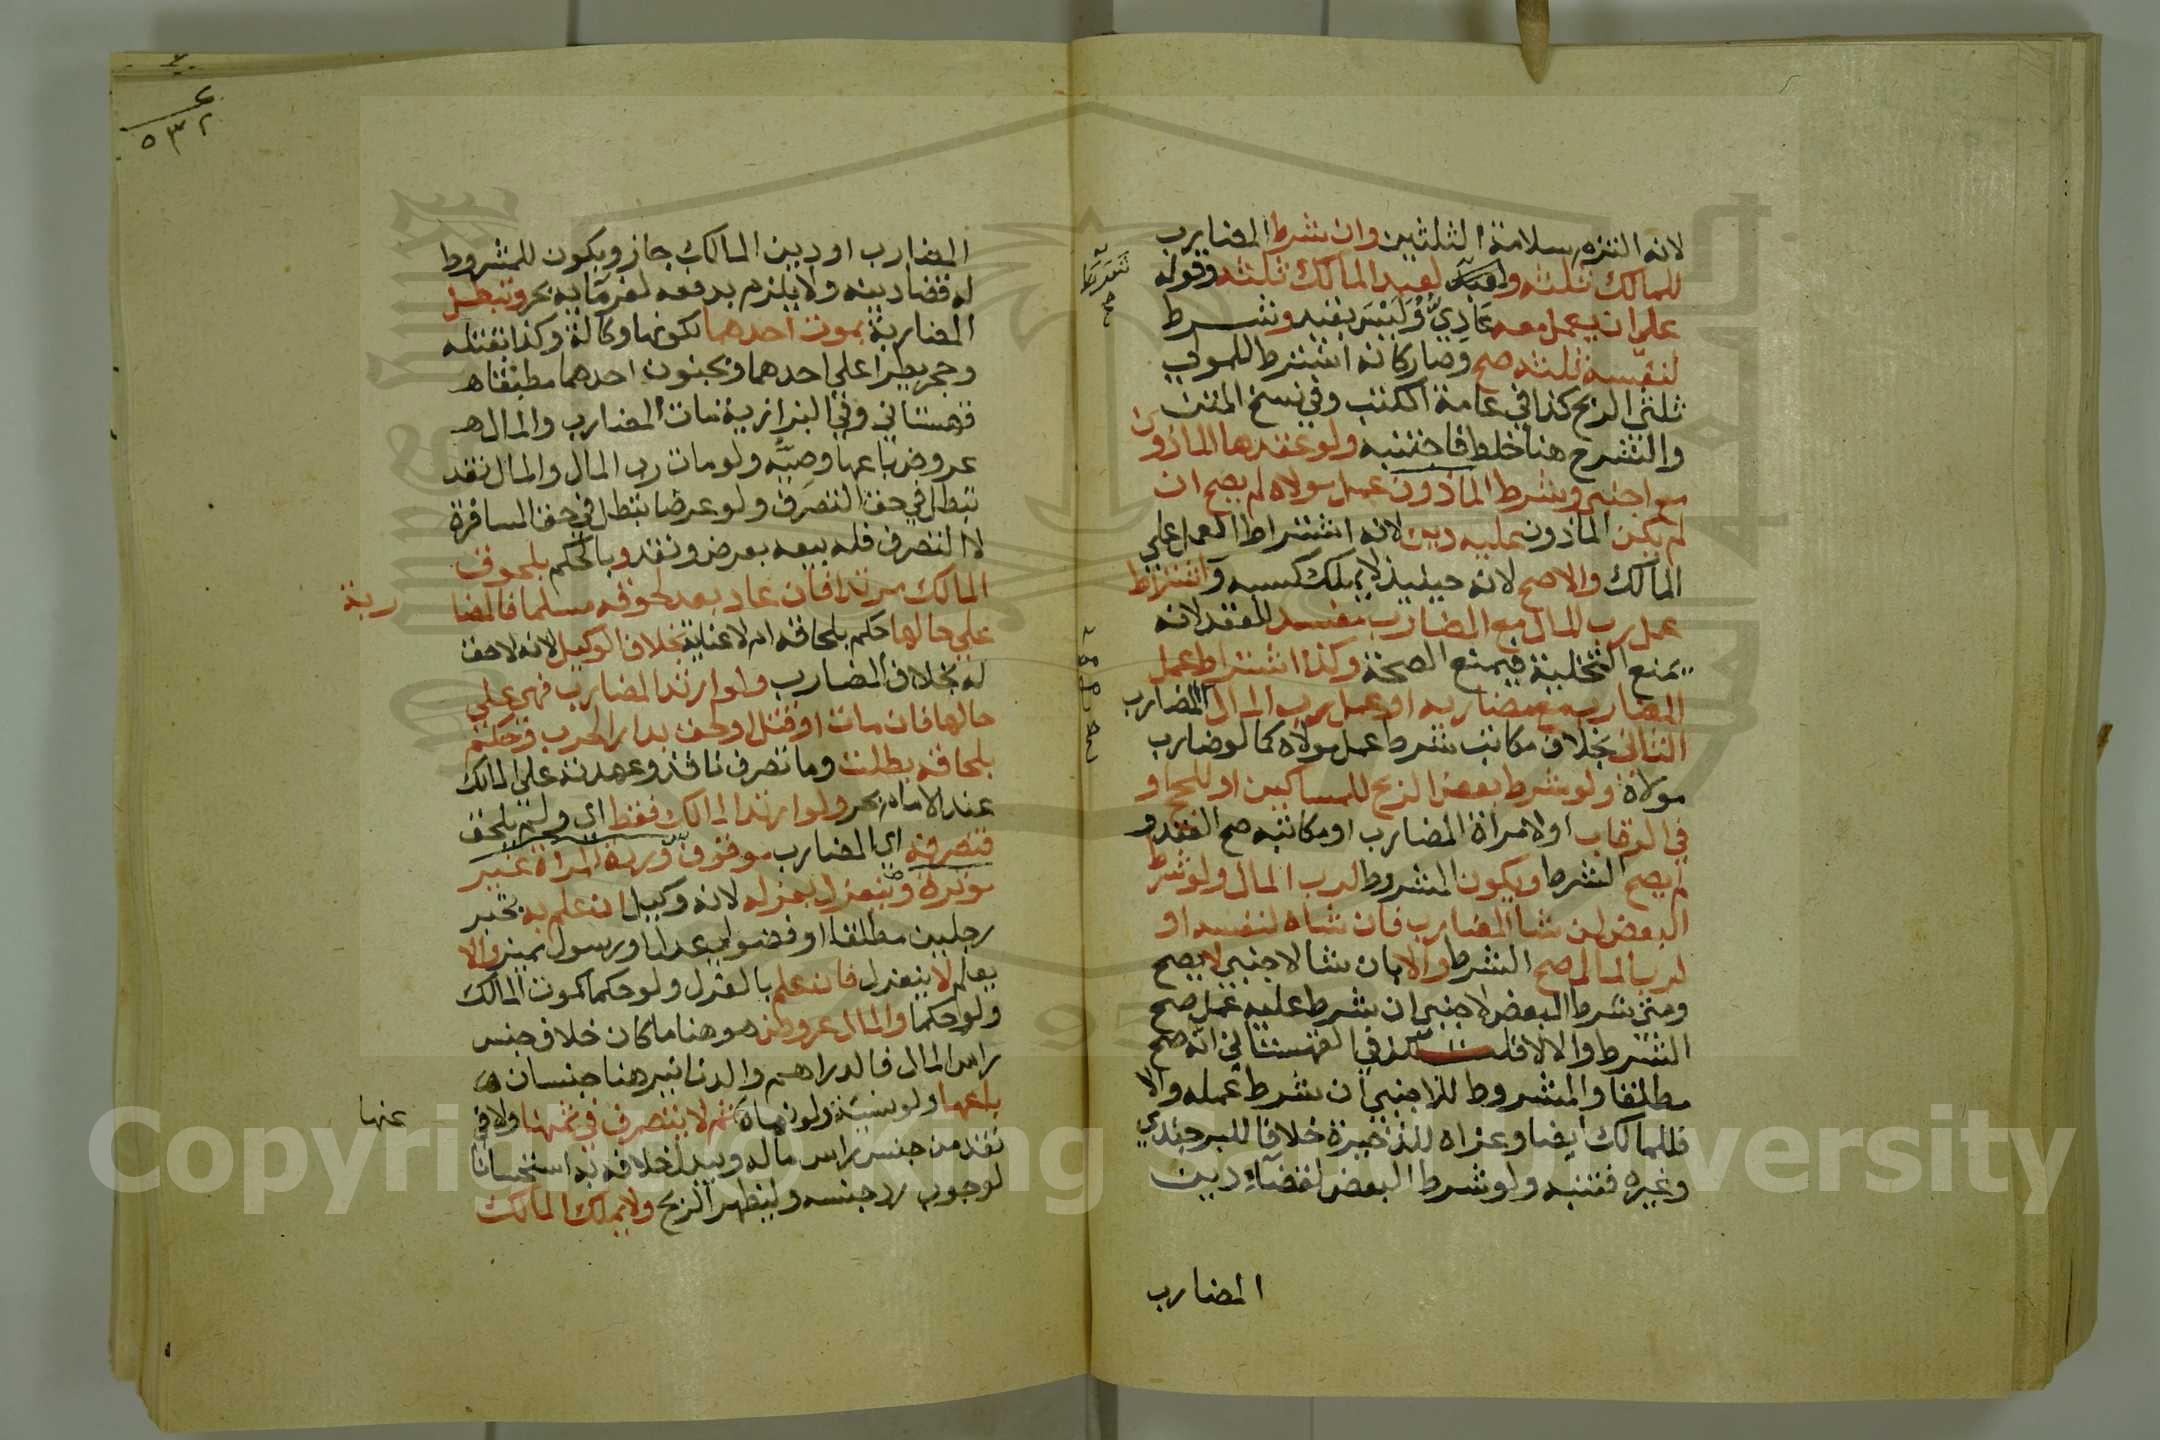 لانه التزم سلامة الثلثين وان شرط المضارب
للمالك ثلثه ولعبد لعبد المالك ثلثه وقوله
على ان يعمل معه عادي وليس بقيد وشرط
لنفسه ثلثه صح وصار كانه اشترط للمولى
ثلثي الربح كذا في عامة الكتب وفي نسخ المتن
والشرح هنا خلط فاجتنبه ولو عقدها الماذون
مع اجنبي وشرط الماذون عمل مولاه لم يصح ان
لم يكن الماذون عليه دين لانه اشتراط العمل على
المالك والا صح لانه حينيذ لا يملك كسبه واشتراط
عمل رب المال مع المضارب مفسد للعقد لانه
يمنع التخلية فيمنع الصحة وكذا اشتراط عمل
المضارب مع مضاربه او عمل رب المال المضارب
الثاني بخلاف مكاتب شرط عمل مولاه كما لو ضارب
مولاه ولو شرط بعض الربح للمساكين او للحج او
في الرقاب او لامراة المضارب او مكاتبه صح العقد و
لم يصح الشرط ويكون المشروط لرب المال ولو شرط
البعض لمن شا المضارب فان شاه لنفسه او
لرب المال صح الشرط والا بان شا لاجنبي لا يصح
ومتى شرط البعض لاجنبي ان شرط عليه عمل صح
الشرط والا لا قلت لكن في القهستاني انه صح
مطلقا والمشروط للاجنبي ان شرط عمله والا
فللمالك ايضا وعزاه للذخيرة خلافا للبرجندي
وغيره فتنبه ولو شرط البعض لقضاء دين
المضارب
٥٣٢
المضارب او دين المالك جاز ويكون للمشروط
له قضا دينه ولا يلزم بدفعه لغرمايه بحر وتبطل
المضاربة بموت احدهما لكونها وكالة وكذا بقتله
وحجر يطرا على احدهما وبجنون احدهما مطبقا هـ
قهستاني وفي البزازية مات المضارب والمال هـ
عروض باعها وصيه ولو مات رب المال والمال نقد
تبطل في حق التصرف ولو عرضا تبطل في حق المسافرة
لا التصرف فله بيعه بعرض ونقد وبالحكم بلحوق
المالك مرتدا فان عاد بعد لحوقه مسلما فالمضا
ربة
على حالها حكم بلحاقه ام لا عناية بخلاف الوكيل لانه لا حق
له بخلاف المضارب ولو ارتد المضارب فهي على
حالها فان مات او قتل او لحق بدار الحرب وحكم
بلحاقه بطلت وما تصرف نافذ وعهدته على المالك
عند الامام بحر ولو ارتد المالك فقط اي ولم يلحق
فتصرفه اي المضارب موقوف وردة المراة غير
موثرة وينعزل بعزله لانه وكيل ان علم به بخبر
رجلين مطلقا او فضولي عدل او رسول مميز والا
يعلم لا ينعزل فان علم بالعزل ولو حكما كموت المالك
ولو حكما والمال عروض هو هنا ما كان خلاف جنس
راس المال فالدراهم والدنانير هنا جنسان
باعها ولو نسيئة ولو نهاه ثم لا يتصرف في ثمنها ولا في
عنها
نقد من جنس راس ماله ويبدل خلافه به استحسانا
لوجوب رد جنسه وليظهر الربح ولا يملك المالك